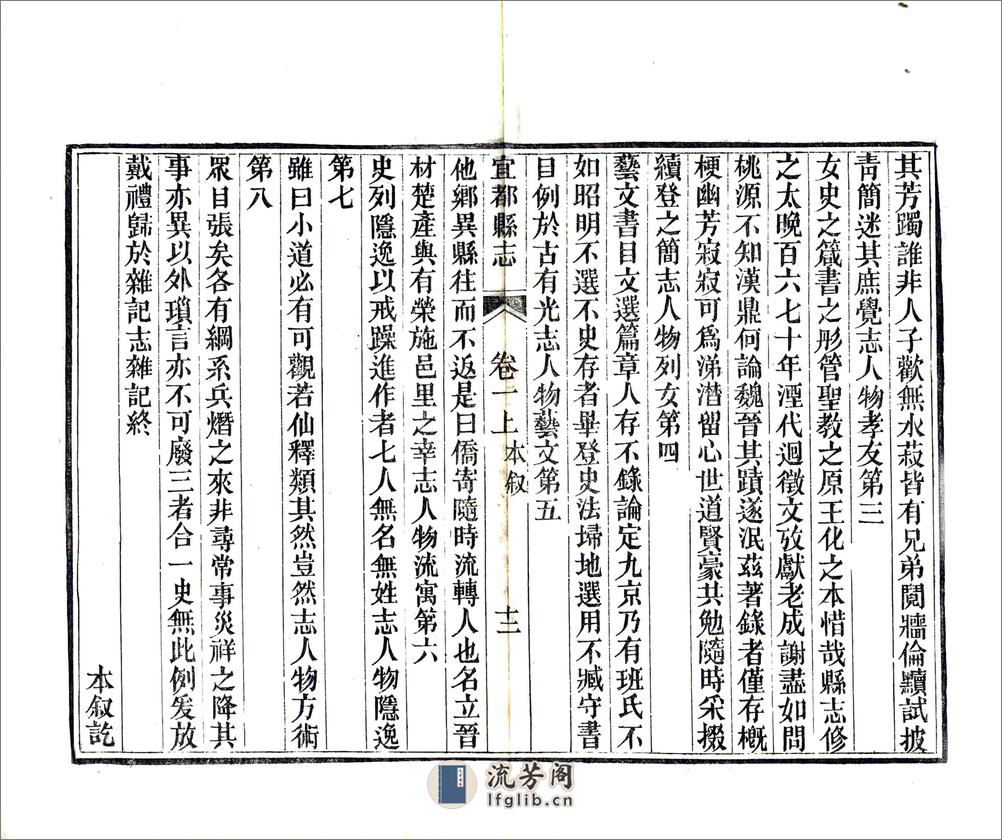 其芳躅誰非人子歡無水菽皆有兄弟鬩牆倫黷試披
靑簡迷其庶覺志人物孝友第三
女史之箴書之彤管聖教之原王化之本惜哉縣志修
之太晚百六七十年湮代迴徵文攷獻老成謝盡如問
桃源不知漢鼎何論魏晉其蹟遂泯茲著錄者僅存概
梗幽芳寂寂可爲涕潸留心世道賢豪共勉隨時采掇
續登之簡志人物列女第四
藝文書目文選篇章人存不錄論定九京乃有班氏不
如昭明不選不史存者畢登史法埽地選用不臧守書
目例於古有光志人物藝文第五
宜都縣志 卷一上 本叙 十二
他鄉異縣往而不返是曰僑寄隨時流轉人也名立晉
材楚產輿有榮施邑里之幸志人物流寓第六
史列隱逸以戒躁進作者七人無名無姓志人物隱逸
第七
雖曰小道必有可觀若仙釋類其然豈然志人物方術
第八
眾目張矣各有綱系兵燹之來非尋常事災祥之降其
事亦異以外瑣言亦不可廢三者合一史無此例爰放
戴禮歸於雜記志雜記終
本叙訖
流芳阁
lfglib.cn